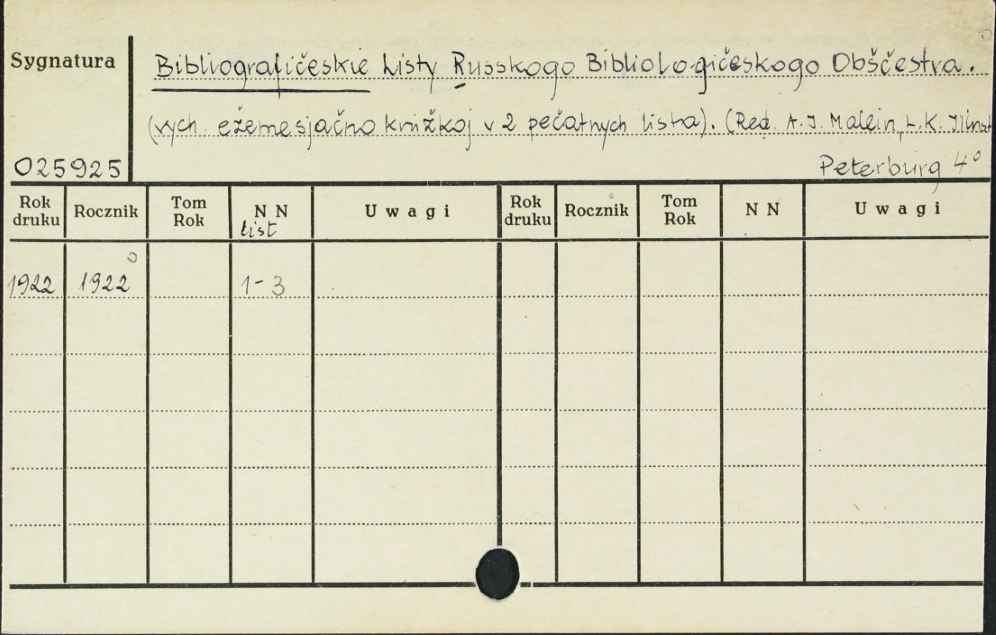 Sygnatura
Bibliografičeskie Listy Russkogo Bibliologičeskogo Obščestva.
(vych. ežemesjačno knižkoj v 2 pečatnych lista). (Red. A.J. Malein, L.K. Il'inst
025925
Peterburg 4°
Rok druku Rocznik Tom Rok N N list Uwagi Rok druku Rocznik Tom Rok N N Uwagi
1922 1922 1-3